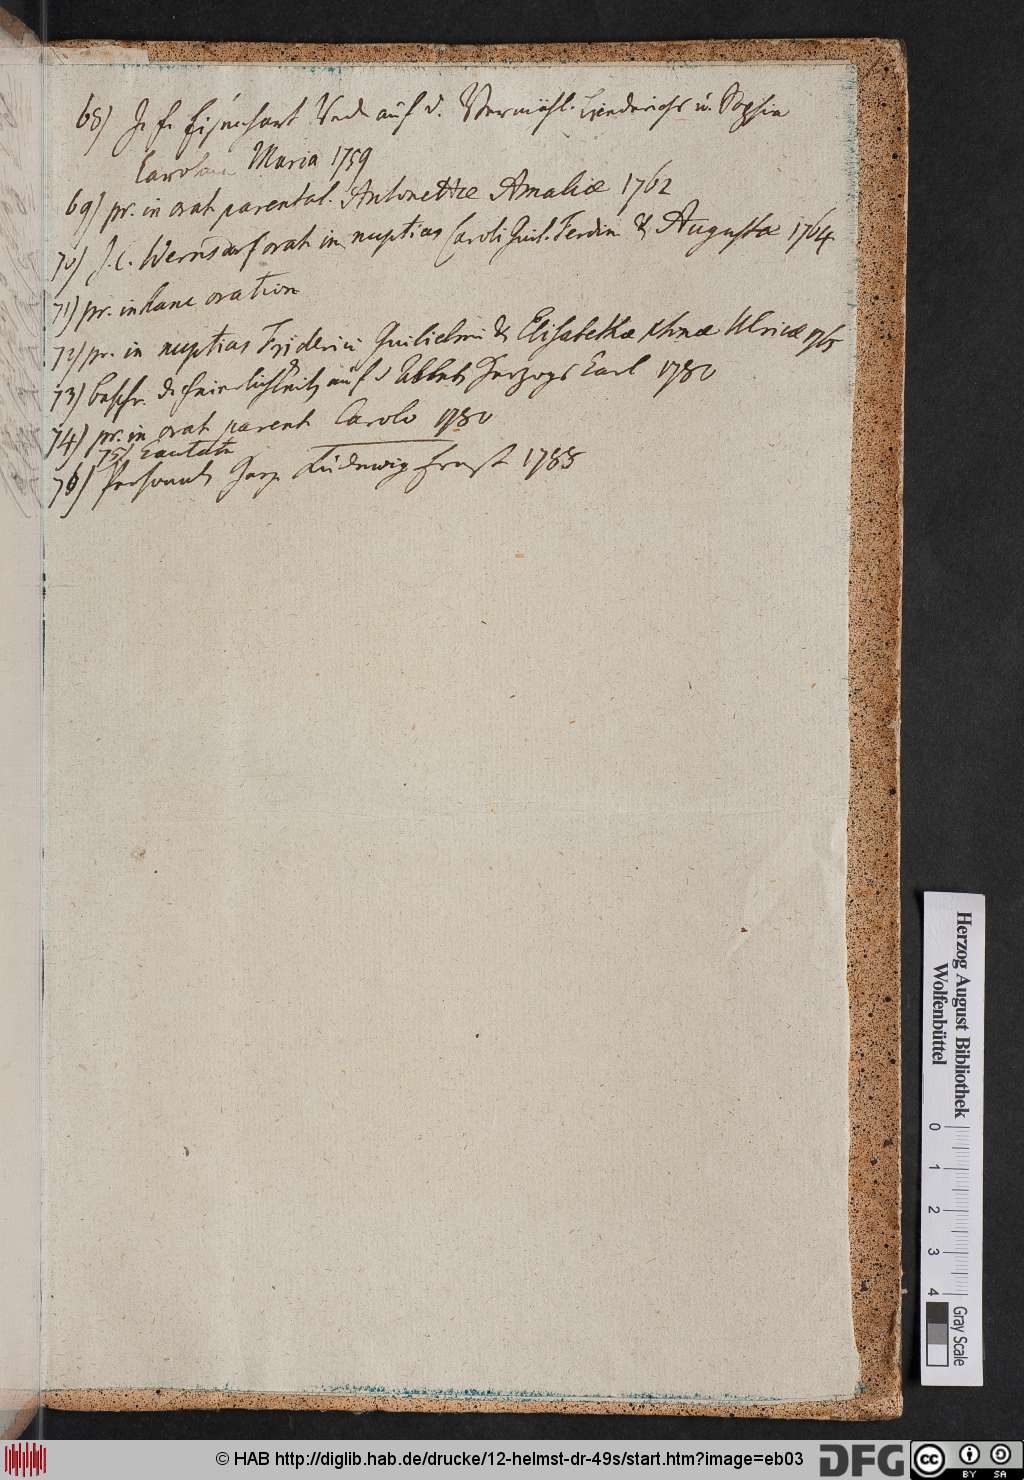 68) J. F. Eisenhart Rede auf d. Vermähl. Friederichs u. Sophia
Carolina Maria 1759
69) pr. in orat parental. Antonettæ Amaliæ 1762
70) J. C. Wernsdorf orat in nuptias Caroli Guil. Ferdin & Augusta 1764
71) pr. in hanc oration
72) pr. in nuptias Friderici Guilielmi & Elisabethæ Chrnæ Ulricæ 1765
73) beschr. d. Feierlichkeit auf d Absterb Herzogs Carl 1780
74) pr. in orat parent Carolo 1780
75) Cantate
76) Personal. Herz. Ludewig Ernst 1788
Herzog August Bibliothek
Wolfenbüttel
0 1 2 3 4
Gray Scale
© HAB http://diglib.hab.de/drucke/12-helmst-dr-49s/start.htm?image=eb03
DFG
cc BY SA